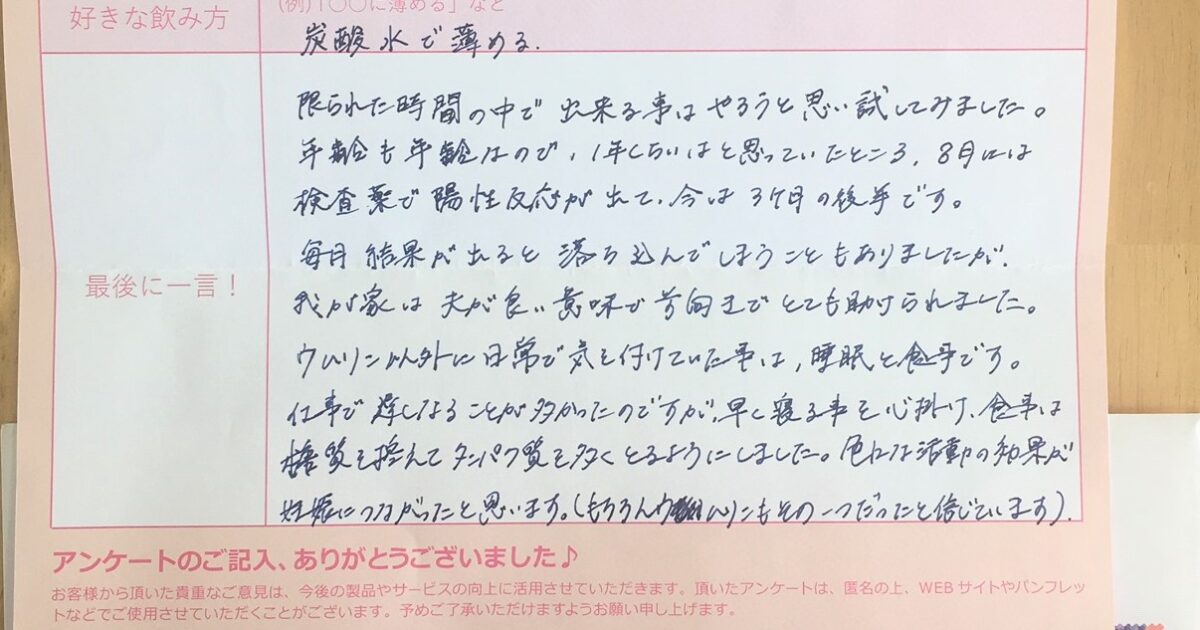 (例)「○○に薄める」など
好きな飲み方
炭酸水で薄める.
限られた時間の中で出来る事はやろうと思い試してみました。
年齢も年齢なので、1年くらいはと思っていたところ、8月には
検査薬で陽性反応が出て、今は3ケ月の後半です。
毎月結果が出ると落ち込んでしまうこともありましたが、
最後に一言!
我が家は夫が良い意味で前向きでとても助けられました。
ウムリン以外に日常で気を付けていた事は、睡眠と食事です。
仕事で遅くなることが多かったのですが、早く寝る事を心掛け、食事は
糖質を控えてタンパク質を多くとるようにしました。色々な活動の効果が
妊娠につながったと思います。(もちろんウムリンもその一つだったと信じています).
アンケートのご記入、ありがとうございました♪
お客様から頂いた貴重なご意見は、今後の製品やサービスの向上に活用させていただきます。頂いたアンケートは、匿名の上、WEBサイトやパンフレッ
トなどでご使用させていただくことがございます。予めご了承いただけますようお願い申し上げます。